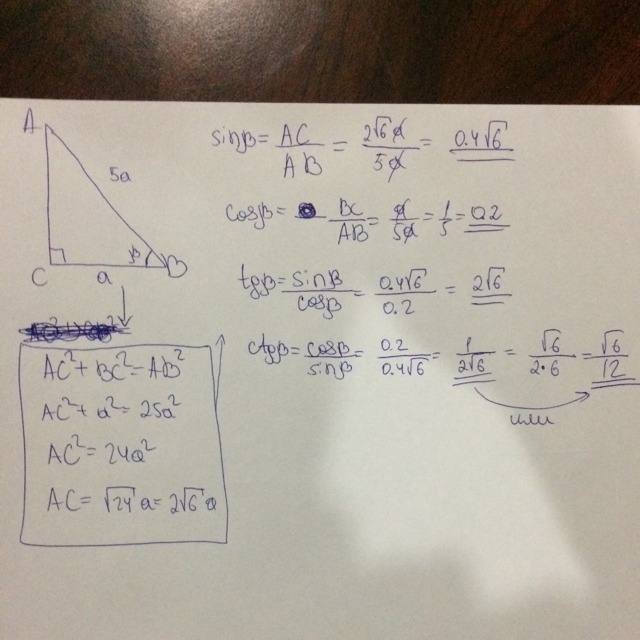 A
5a
β
C
a
B
AC² + BC² = AB²
AC² + a² = 25a²
AC² = 24a²
AC = √24 a = 2√6 a
sinβ = AC/AB = 2√6a/5a = 0.4√6
cosβ = BC/AB = a/5a = 1/5 = 0.2
tgβ = sinβ/cosβ = 0.4√6/0.2 = 2√6
ctgβ = cosβ/sinβ = 0.2/0.4√6 = 1/2√6 = √6/2·6 = √6/12
или